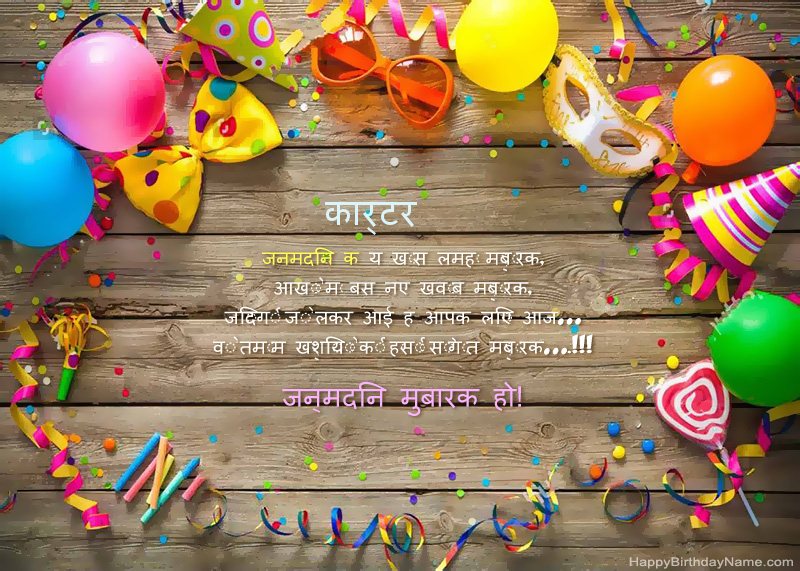 कार्टर
जनमदनि क य खास लमहा मबारक,
आखों में बसे नए खवाब मबारक,
जदिगी जो लेकर आई ह आपक लएि आज...
वो तमाम खुशयिों की हसीं सौगात मबारक...!!!
जन्मदनि मुबारक हो!
HappyBirthdayName.com